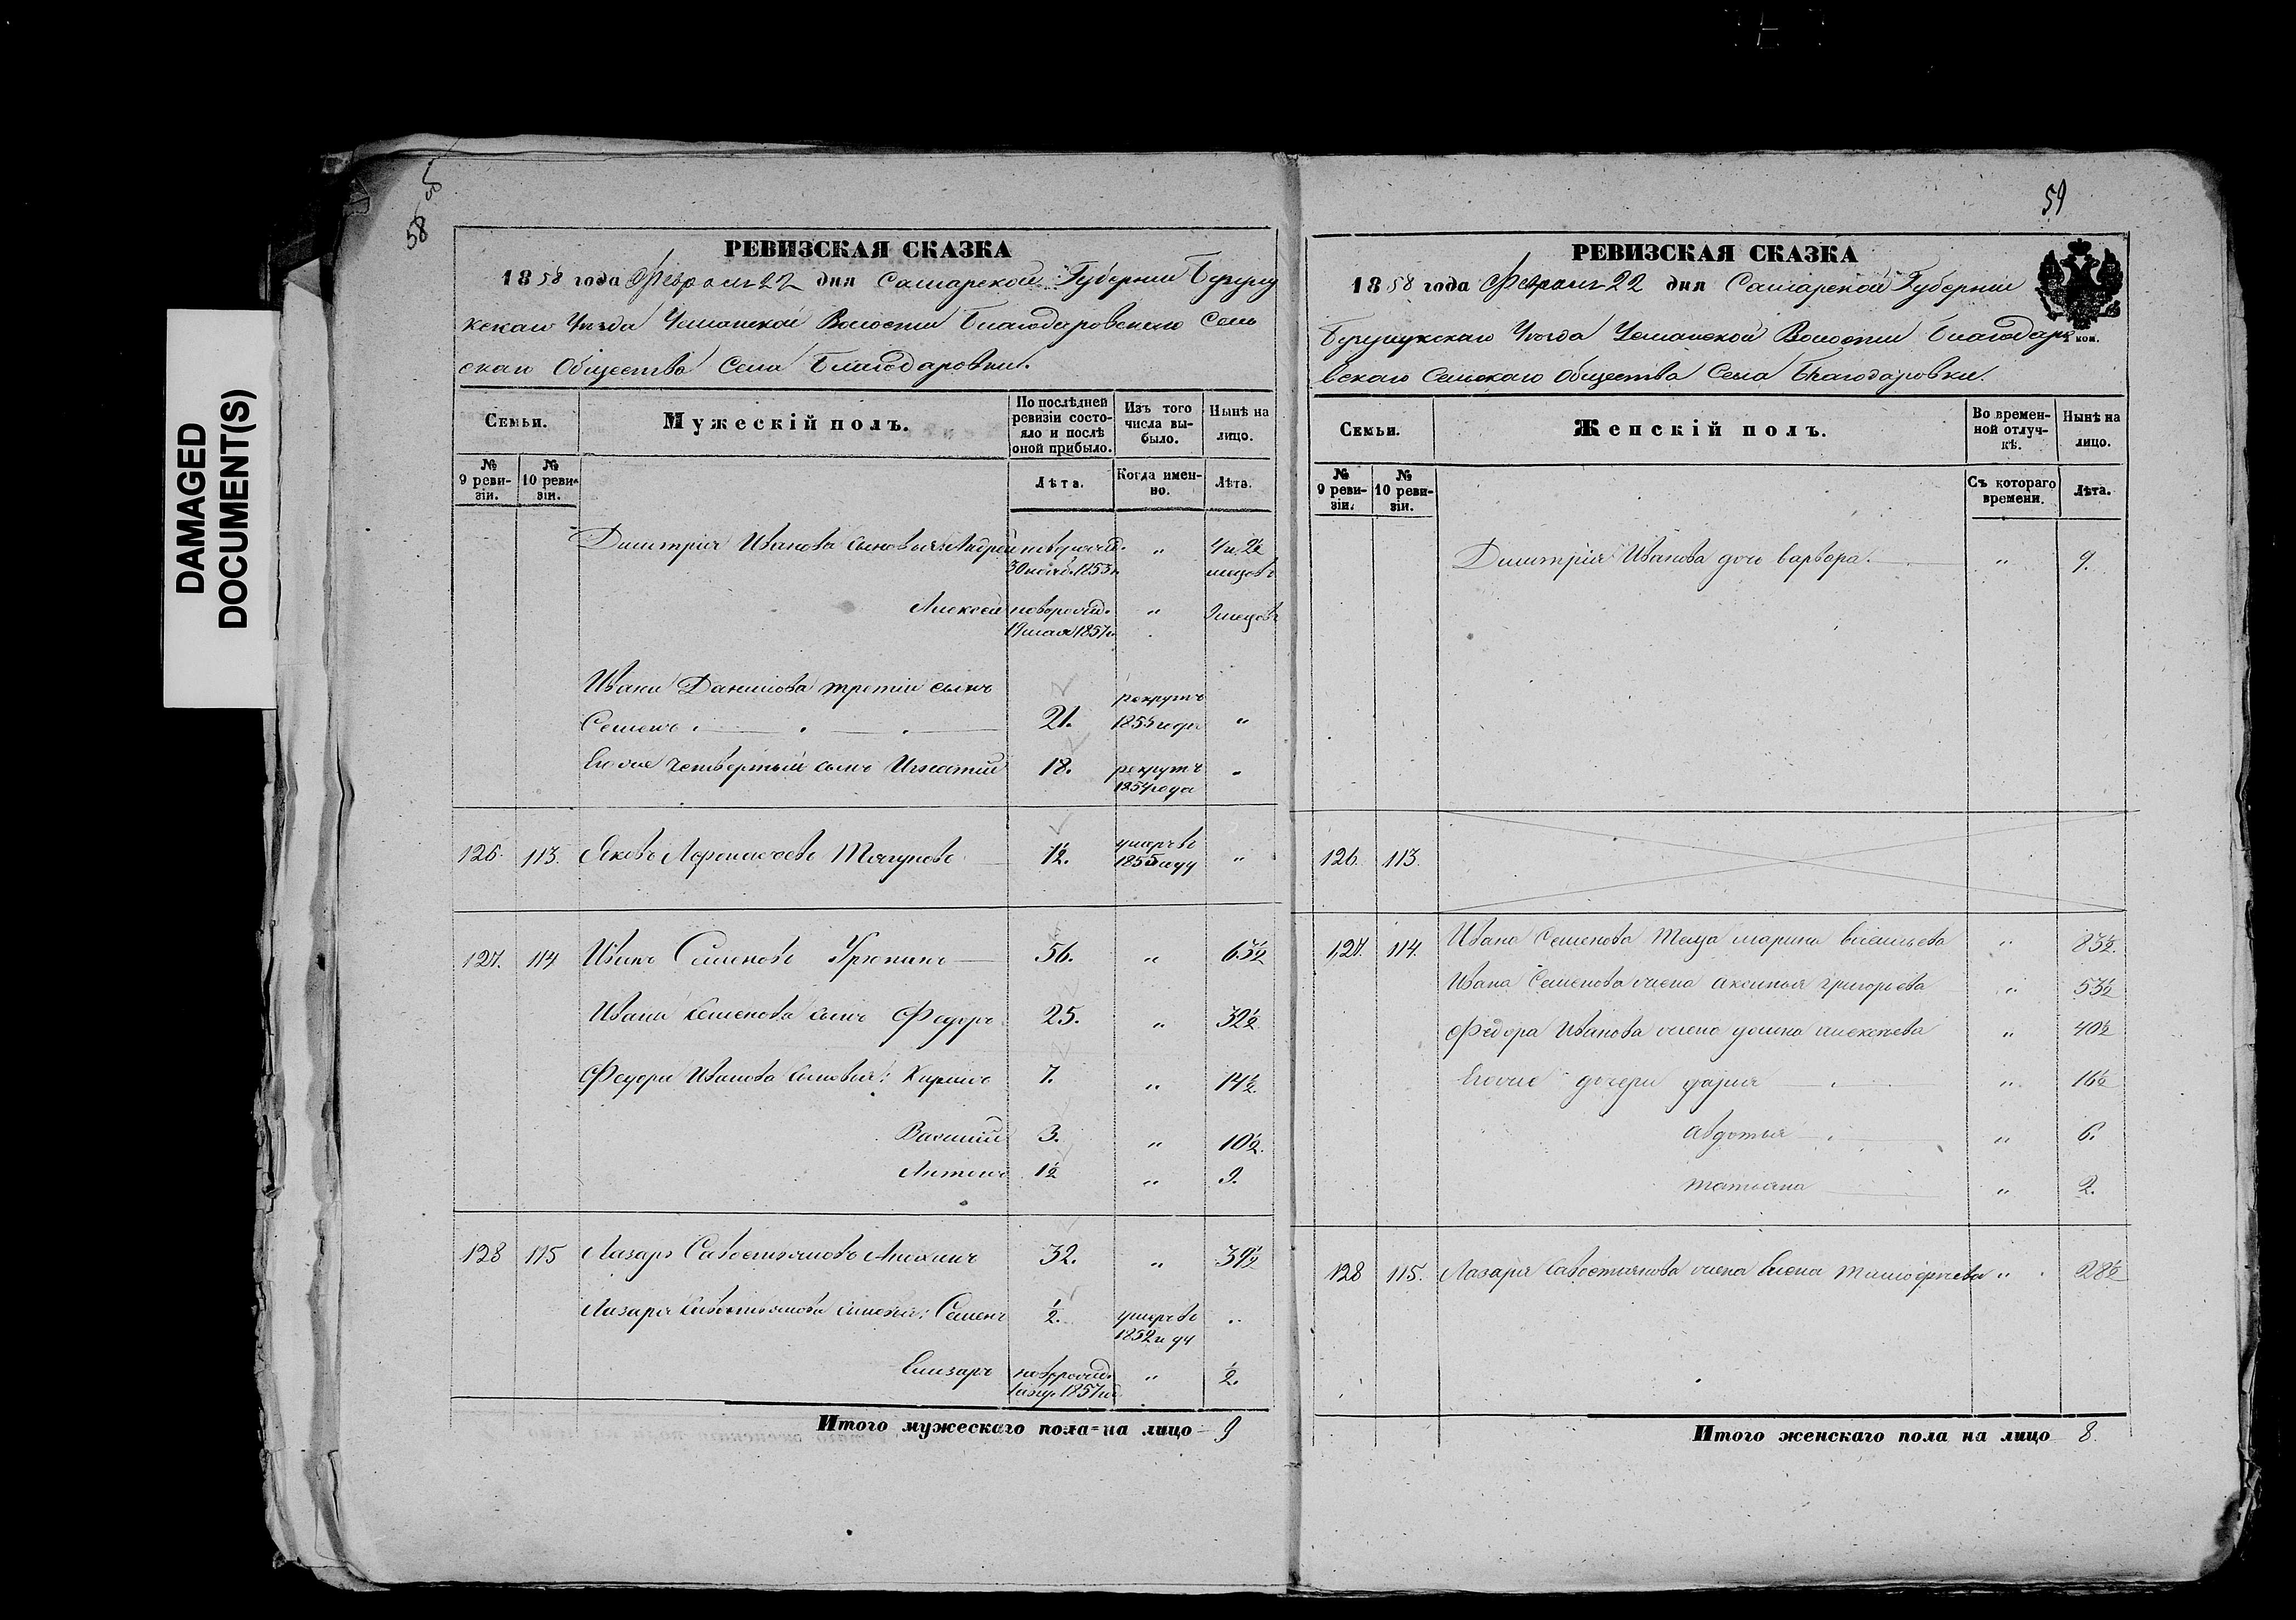 DAMAGED
DOCUMENT(S)
58
РЕВИЗСКАЯ СКАЗКА
1858 года Февраля 22 дня Самарской Губернии Бугуру
Уѣзда Волости Благодаровскаго Сель
скаго Общества Села Благодаровки.
Семьи.
Мужескій полъ.
По послѣдней ревизіи состояло и послѣ оной прибыло.
Изъ того числа выбыло.
Нынѣ на лицо.
№ 9 ревизіи.
№ 10 ревизіи.
Лѣта.
Когда именно.
Лѣта.
Димитрія Иванова сыновья: Андрей новорожд. 30 1853 " 4 и 2½ месяцовъ
Алексей новорожд. 19 мая 1857 " 9 месяцовъ
Ивана Данилова третій сынъ
Семенъ 21. рекрутъ 1855 года "
Его же четвертый сынъ Игнатій 18. рекрутъ 1854 года "
126. 113. Яковъ Тягуновъ 1½. умеръ въ 1855 году "
127. 114 Иванъ Семеновъ Урюпинъ 56. " 63½
Ивана Семенова сынъ Федоръ 25. " 32½
Федора Иванова сыновья: 7. " 14½
Василий 3. " 10½.
Антонъ 1½ " 9.
128 115 Лазарь Савостьяновъ Анохинъ 32. " 39½
Лазаря Савостьянова сыновья: Семенъ ½. умеръ въ 1852 году "
Елизаръ новорожд. 1857 " ½.
Итого мужескаго пола на лицо 9
59
РЕВИЗСКАЯ СКАЗКА
1858 года Февраля 22 дня Самарской Губерніи
Уѣзда Волости Благодаро
вскаго Сельскаго Общества Села Благодаровки.
Семьи.
Женскій полъ.
Во временной отлучкѣ.
Нынѣ на лицо.
№ 9 ревизіи.
№ 10 ревизіи.
Съ котораго времени.
Лѣта.
Димитрія Иванова дочь варвара. " 9.
126. 113.
127. 114. Ивана Семенова теща марина " 83½.
Ивана Семенова жена аксинья григорьева " 53½
Федора Иванова жена домна алексѣева " 40½
Его же дочери дарья " 16½
авдотья " 6.
татьяна " 2.
128 115. Лазаря Савостьянова жена елена тимофѣева " 28½
Итого женскаго пола на лицо 8.